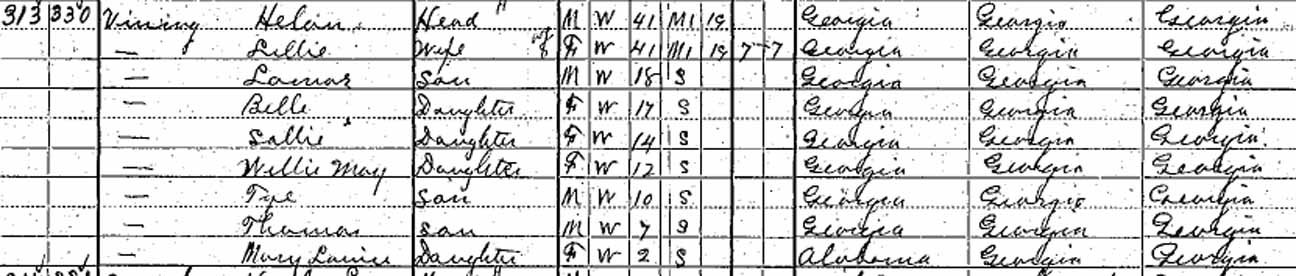 313 330 Vining Helon Head M W 41 M1 19 Georgia Georgia Georgia
— Lillie Wife F W 41 M1 19 7 7 Georgia Georgia Georgia
— Lamar Son M W 18 S Georgia Georgia Georgia
— Belle Daughter F W 17 S Georgia Georgia Georgia
— Sallie Daughter F W 14 S Georgia Georgia Georgia
— Willie May Daughter F W 12 S Georgia Georgia Georgia
— Tye Son M W 10 S Georgia Georgia Georgia
— Thomas Son M W 7 S Georgia Georgia Georgia
— Mary Daughter F W 2 S Alabama Georgia Georgia